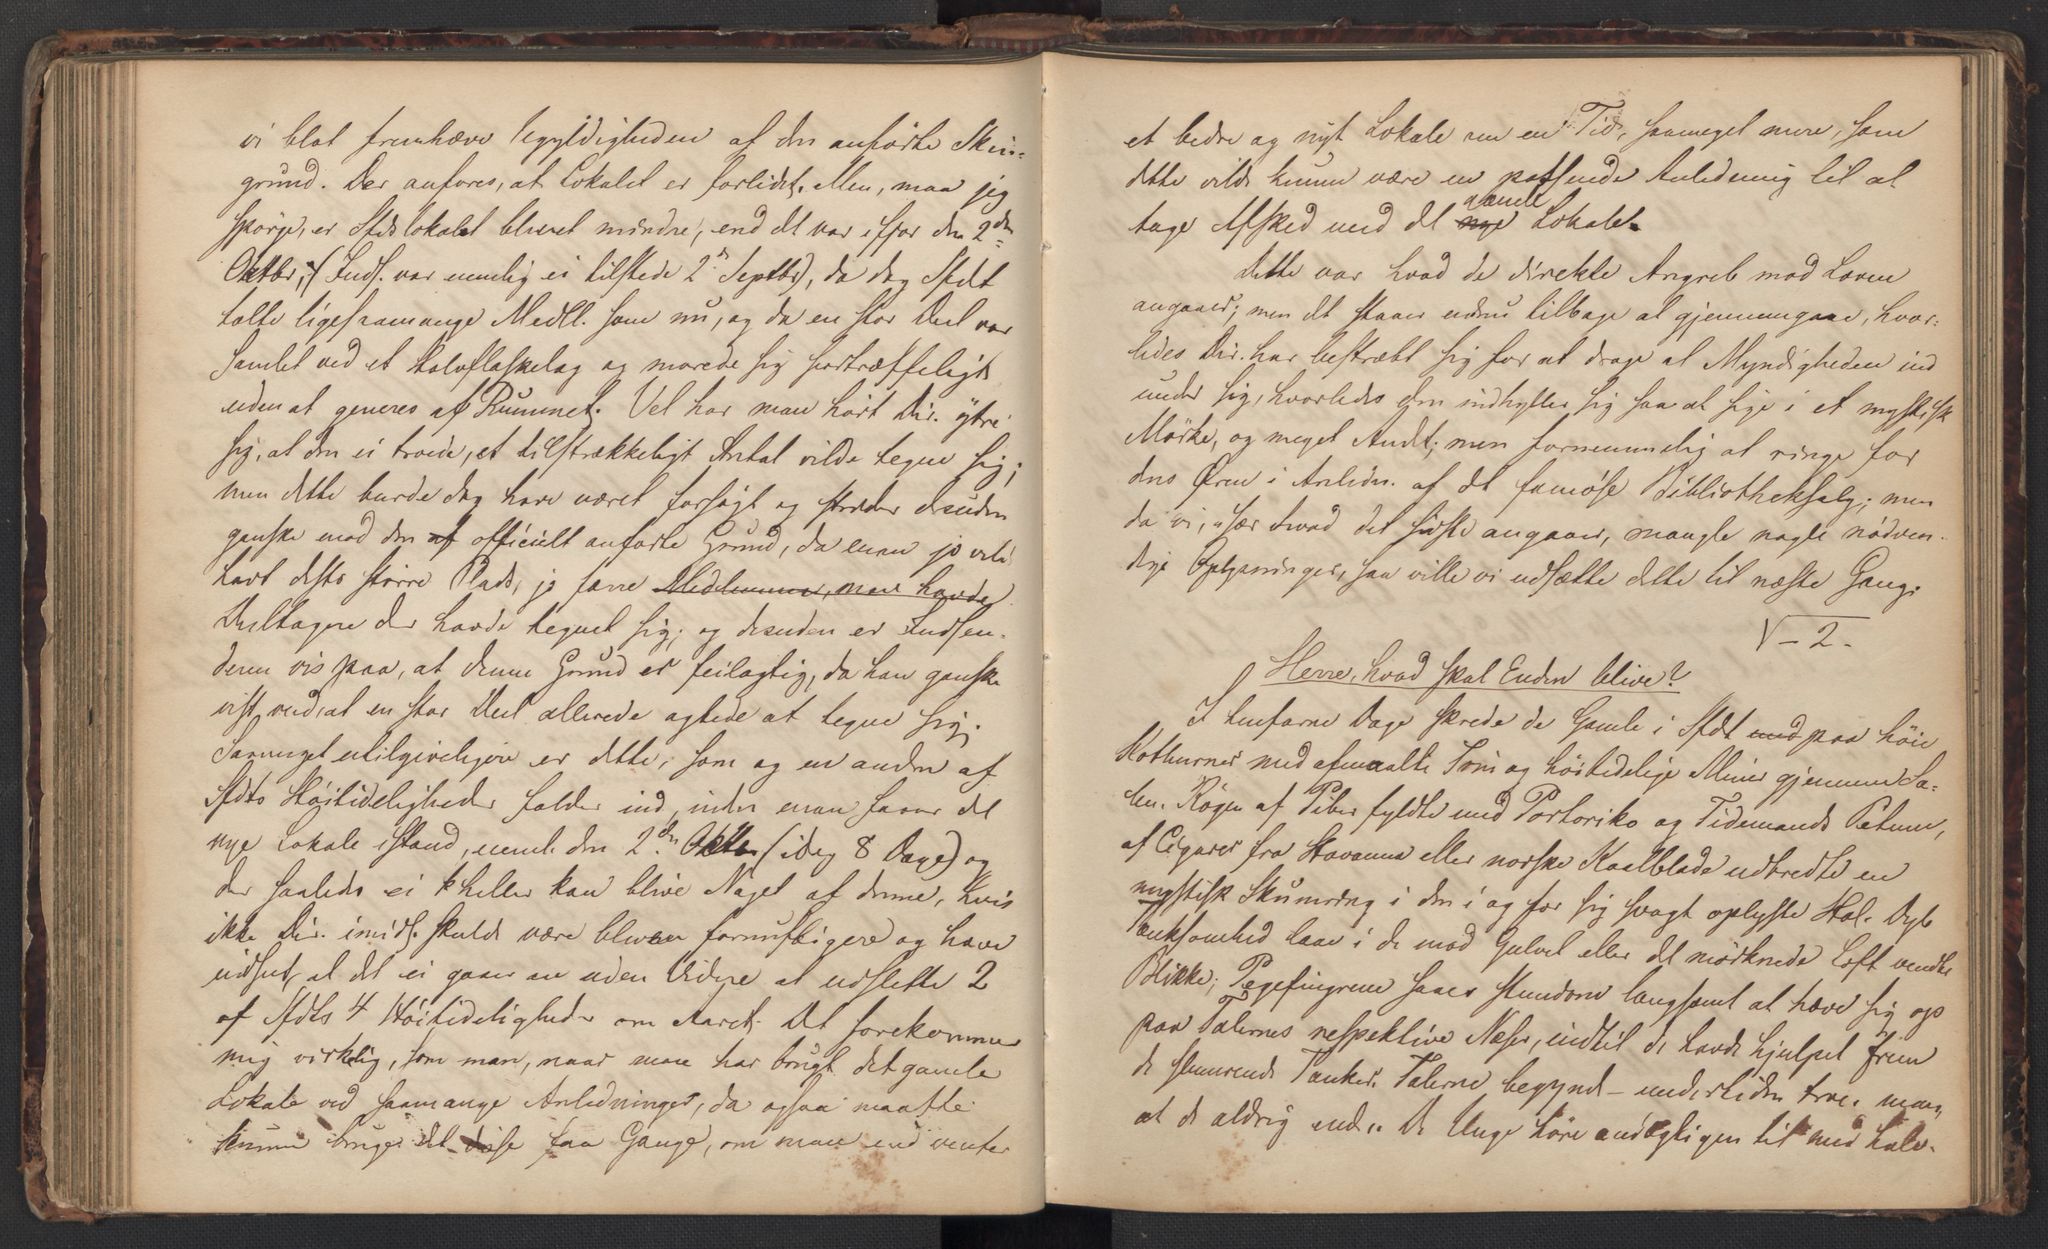 vi blot fremhæve Ugyldigheden af den anførte Skin-
grund. Der anføres, at Lokalet er forlidet. Men, maa jeg
spørge, er Sfdslokalet blevet mindre, end det var ifjor den 2den
Oktbr, (Inds. var nemlig ei tilstede 2n Septbr), da dog Sfdt
talte ligesaamange Medll. som nu, og da en stor Deel var
samlet ved et Halvflaskelag og morede sig fortræffeligt
uden at generes af Rummet. Vel har man hørt Dir. ÿtre
sig, at den ei troede, et tilstrækkeligt Antal vilde tegne sig;
men dette burde dog have været forsøgt og strider desuden
ganske mod den af officielt anførte Grund, da man jo vilde
havt desto større Plads, jo færre Medlemmer, man havde
Deltagere der havde tegnet sig; og desuden er Indsen-
deren vis paa, at denne Grund er feilagtig, da han ganske
vist ved, at en stor Deel allerede agtede at tegne sig.
Saameget utilgiveligere er dette, som og en anden af
Sfdts Høitideligheder falder ind, inden man faaer det
nye Lokale istand, neml. den 2den Oktbr (idag 8 Dage) og
der saaledes ei heller kan blive Noget af denne, hvis
ikke Dir. imidl. skulde være bleven fornuftigere og have
indseet, at det ei gaaer an uden Videre at udslette 2
af Sfdts 4 Høitideligheder om Aaret. Det forekommer
mig virkelig, som man, naar man har brugt det gamle
Lokale ved saamange Anledninger, da ogsaa maatte
kunne bruge det disse faa Gange, om man end venter
et bedre og nyt Lokale om en Tid, saameget mere, som
dette vilde kunne være en passende Anledning til at
tage Afsked med det nye gamle Lokale.
Dette var hvad de direkte Angreb mod Loven
angaaer; men det staaer endnu tilbage at gjennemgaae, hvor-
ledes Dir. har bestræbt sig for at drage al Myndigheden ind
under sig, hvorledes den indhyller sig saa at sige i et mystisk
Mörke, og meget Andet; men fornemmelig at ringe for
dens Øren i Anledn. af det famöse Bibliotheksalg; men
da vi, især hvad det sidste angaaer, mangle nogle nödven-
dige Oplysninger, saa ville vi udsætte dette til næste Gang.
V-2-
Herre, hvad skal Enden blive?
I henfarne Dage skrede de Gamle i Sfdt med paa höie
Kothurner med afmaalte Trin og höitidelige Miner gjennem Sa-
len. Rögen af Piber fyldte med Portoriko og Tidemands Petum,
af Cigarer fra Havanna eller norske Kaalblade udbredte en
mystisk Skumring i den i og for sig svagt oplyste Hal. Dyb
Tænksomhed laae i de mod Gulvet eller det mörknede Loft vendte
Blikke; Pegefingrene saaes stundom langsomt at hæve sig op
paa Talernes respektive Næser, indtil de havde hjulpet frem
de slumrende Tanker. Talerne begyndte - undertiden troe man,
at de aldrig ende. De Unge höre andægtigen til med halv-